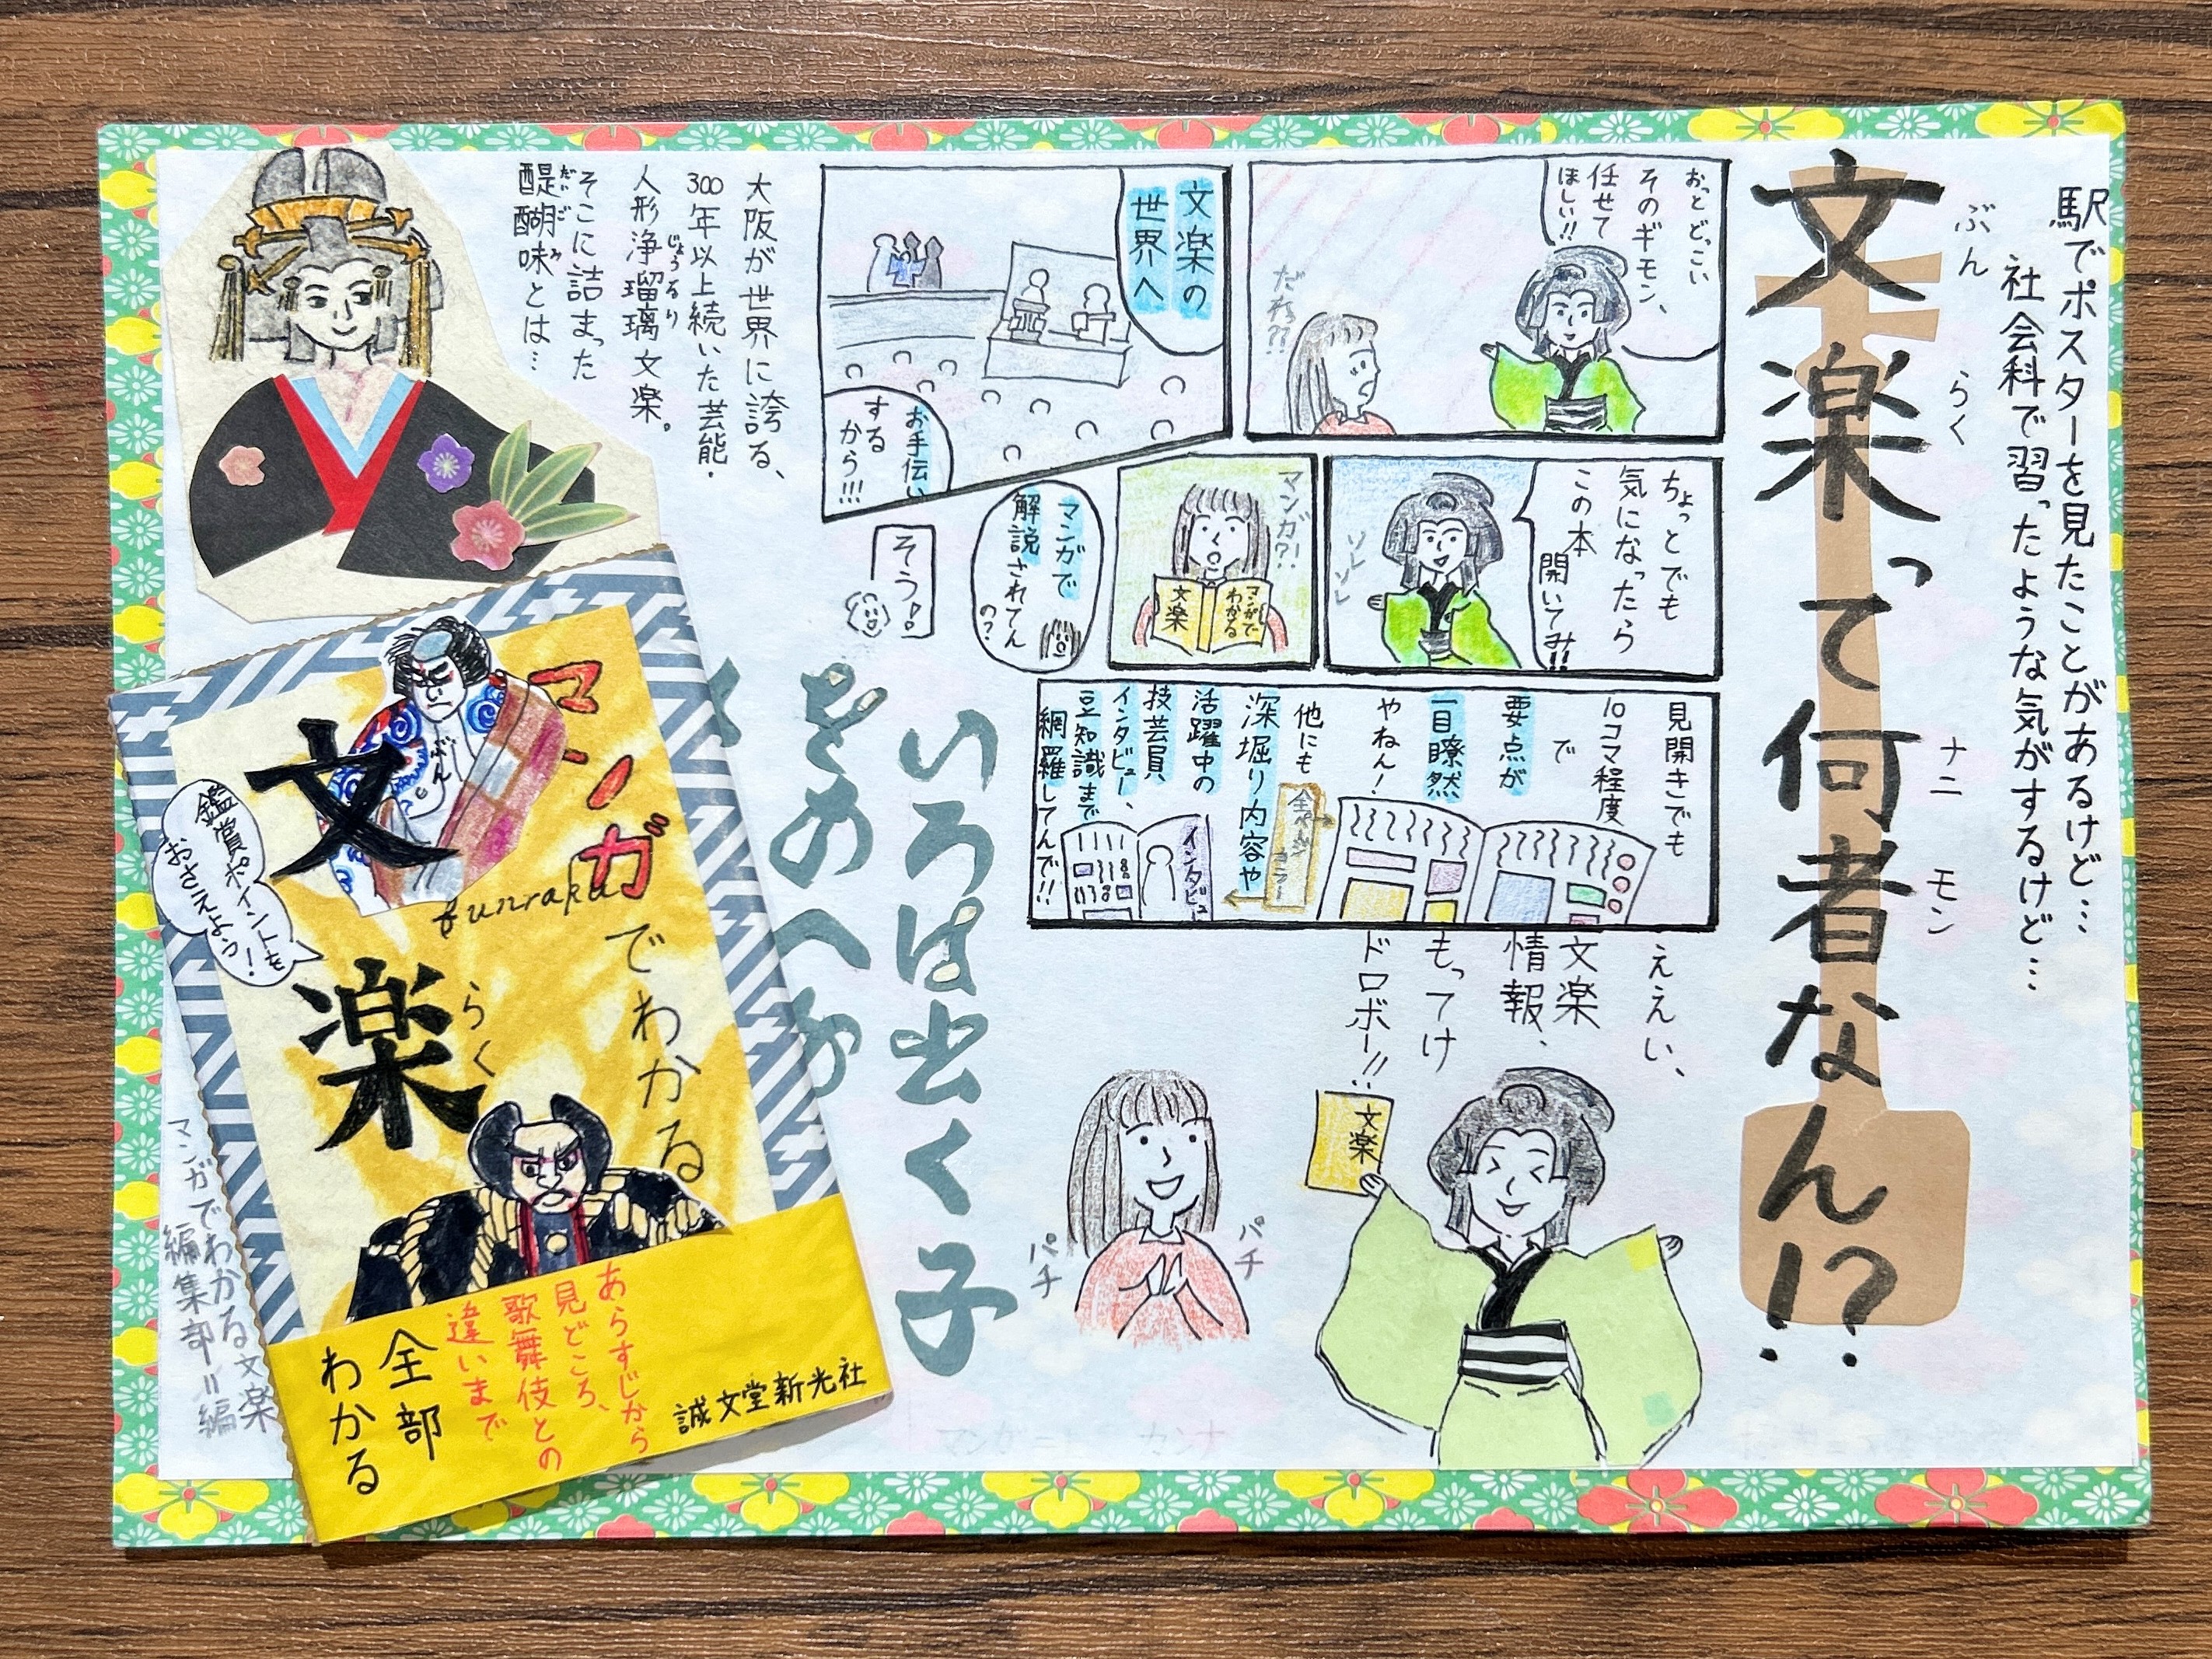 駅でポスターを見たことがあるけど…
社会科で習ったような気がするけど…
ぶん らく ナニ モン
文楽って何者なん!?
おっとどっこい
そのギモン、
任せて
ほしい!!
だれ??
文楽の
世界へ
お手伝い
する
から!!!
ちょっとでも
気になったら
この本
開いてみ!!
ソレソレ
マンガ?!
マンガで
わかる
文楽
マンガで
解説されてん
の?
そう!
見開きでも
10コマ程度
で
要点が
一目瞭然
やねん!
他にも
深堀り内容や
活躍中の
技芸員
インタビュー、
豆知識まで
網羅してんで!!
全ページ
カラー
インタビュー
ええい、
文楽
情報、
もってけ
ドロボー!!
文楽
パチ
パチ
大阪が世界に誇る、
300年以上続いた芸能・
じょうるり
人形浄瑠璃文楽。
そこに詰まった
だいごみ
醍醐味とは…
いろは出く子
マンガでわかる
ぶん
文
bunraku
らく
楽
鑑賞ポイントを
おさえよう!
あらすじから
見どころ、
歌舞伎との
違いまで
全部
わかる
誠文堂新光社
マンガでわかる文楽
編集部=編